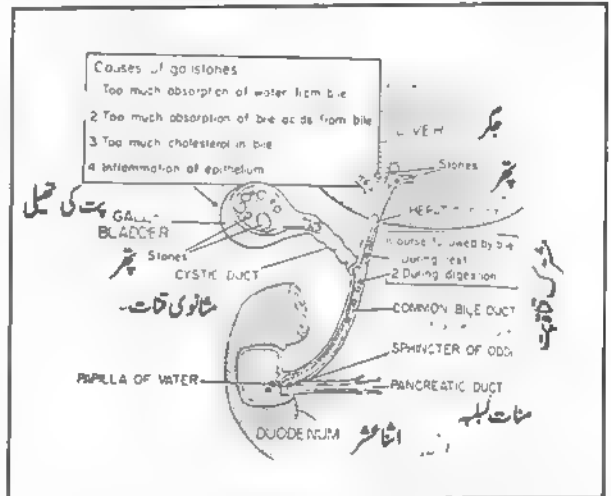 Causes of gallstones
Too much absorption of water from bile
2 Too much absorption of bile acids from bile
3 Too much cholesterol in bile
4 Inflammation of epithelium
LIVER
جگر
Stones
پتھر
پت کی تھیلی
GALL
BLADDER
Stones
پتھر
CYSTIC DUCT
مثانوی قنات
Course followed by bile
During rest
2 During digestion
COMMON BILE DUCT
SPHINCTER OF ODDI
PAPILLA OF VATER
PANCREATIC DUCT
DUODENUM
اثنا عشر